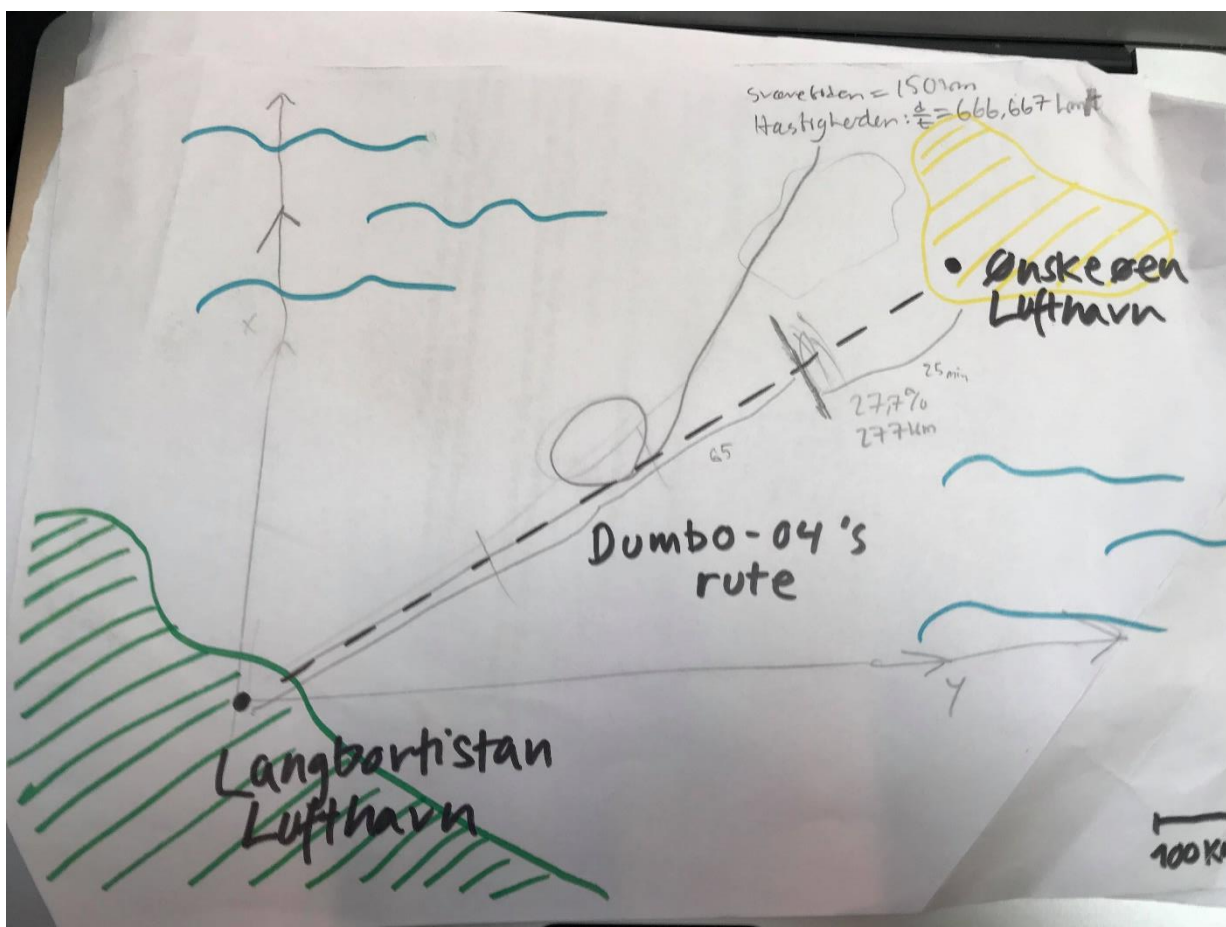 Sværevidden = 150 km
Hastigheden: d/t = 666,667 km/t
Ønskeøen
Lufthavn
25 min
27,7%
277 km
65
X
Dumbo-04's
rute
Y
Langbortistan
Lufthavn
100 K